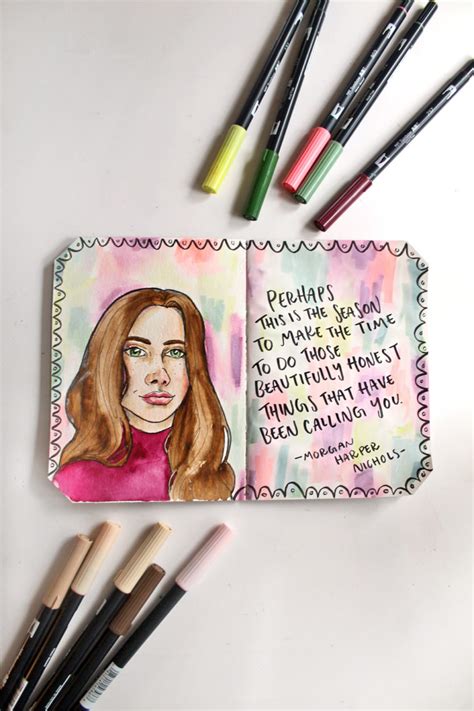 PERHAPS
THIS IS THE SEASON
TO MAKE THE TIME
TO DO THOSE
BEAUTIFULLY HONEST
THINGS THAT HAVE
BEEN CALLING YOU.
-MORGAN
HARPER
NICHOLS-